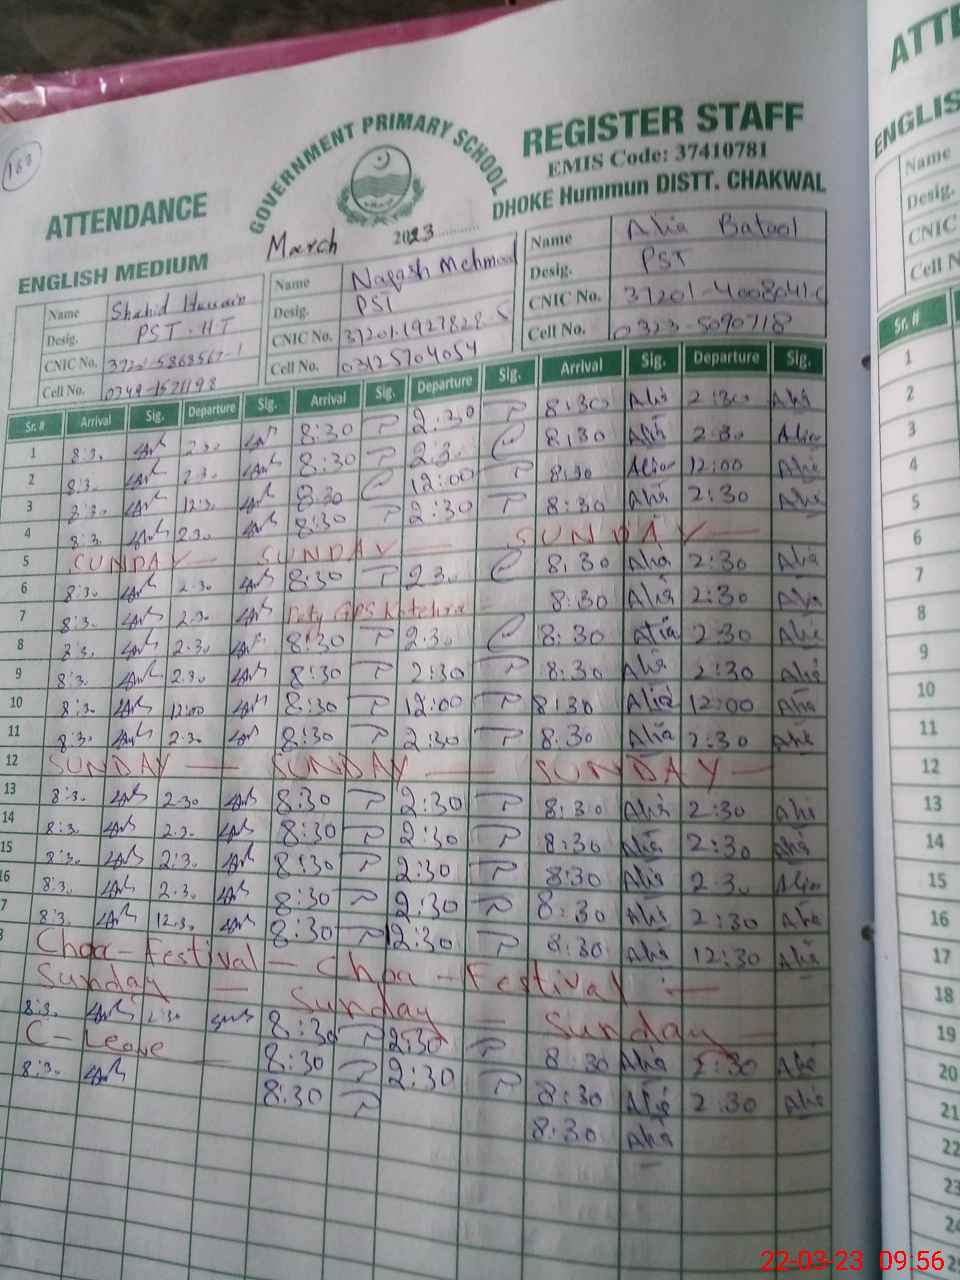 168
ATTENDANCE
GOVERNMENT PRIMARY SCHOOL
REGISTER STAFF
EMIS Code: 37410781
DHOKE Hummun DISTT. CHAKWAL
ENGLISH MEDIUM
March 2023
Name Shahid Hussain
Desig. PST-HT
CNIC No.
Cell No.
Name Naqash Mehmood
Desig. PST
CNIC No. 37201-1927828-5
Cell No. 03125704054
Name Alia Batool
Desig. PST
CNIC No.
Cell No. 0323-5090718
Sr. # Arrival Sig. Departure Sig. Arrival Sig. Departure Sig. Arrival Sig. Departure Sig.
1 8:3. 2:30 8:30 2:30 8:30 Alia 2:30 Alia
2 8:3. 2:3. 8:30 2:3. 8:30 Alia 2:30 Alia
3 8:3. 12:3. 8:30 12:00 8:30 Alia 12:00 Alia
4 8:3. 2:30 8:30 2:30 8:30 Alia 2:30 Alia
5 SUNDAY — SUNDAY — SUNDAY —
6 8:3. 2:30 8:30 2:3. 8:30 Alia 2:30 Alia
7 8:3. 2:30 Duty GPS 8:30 Alia 2:30 Alia
8 8:3. 2:30 8:30 2:3. 8:30 Alia 2:30 Alia
9 8:3. 2:30 8:30 2:30 8:30 Alia 2:30 Alia
10 8:3. 12:00 8:30 12:00 8:30 Alia 12:00 Alia
11 8:3. 2:30 8:30 2:30 8:30 Alia 2:30 Alia
12 SUNDAY — SUNDAY — SUNDAY —
13 8:3. 2:30 8:30 2:30 8:30 Alia 2:30 Alia
14 8:3. 2:3. 8:30 2:30 8:30 Alia 2:30 Alia
15 8:3. 2:3. 8:30 2:30 8:30 Alia 2:3. Alia
16 8:3. 2:3. 8:30 2:30 8:30 Alia 2:30 Alia
7 8:3. 12:3. 8:30 12:30 8:30 Alia 12:30 Alia
Choa-Festival — Choa-Festival —
Sunday — Sunday — Sunday —
8:3. 2:30 8:30 2:30 8:30 Alia 2:30 Alia
C-Leave — 8:30 2:30 8:30 Alia 2:30 Alia
8:3. 8:30 8:30 Alia
ENGLIS
Name
Desig.
CNIC
Cell N
Sr. #
1
2
3
4
5
6
7
8
9
10
11
12
13
14
15
16
17
18
19
20
21
22
23
22-03-23 09:56